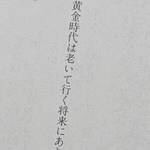 黄金時代は老いて行く将来にあり